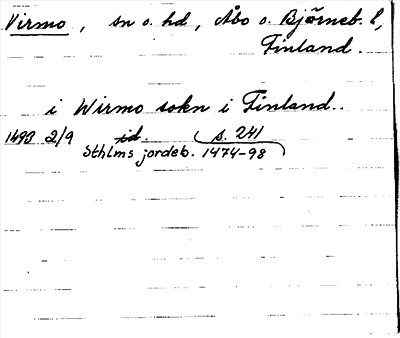 Virmo, sn o. hd, Åbo o. Björneb. l,
Finland.
i Wirmo sokn i Finland..
1493 2/9 id. s. 241
Sthlms jordeb. 1474-98